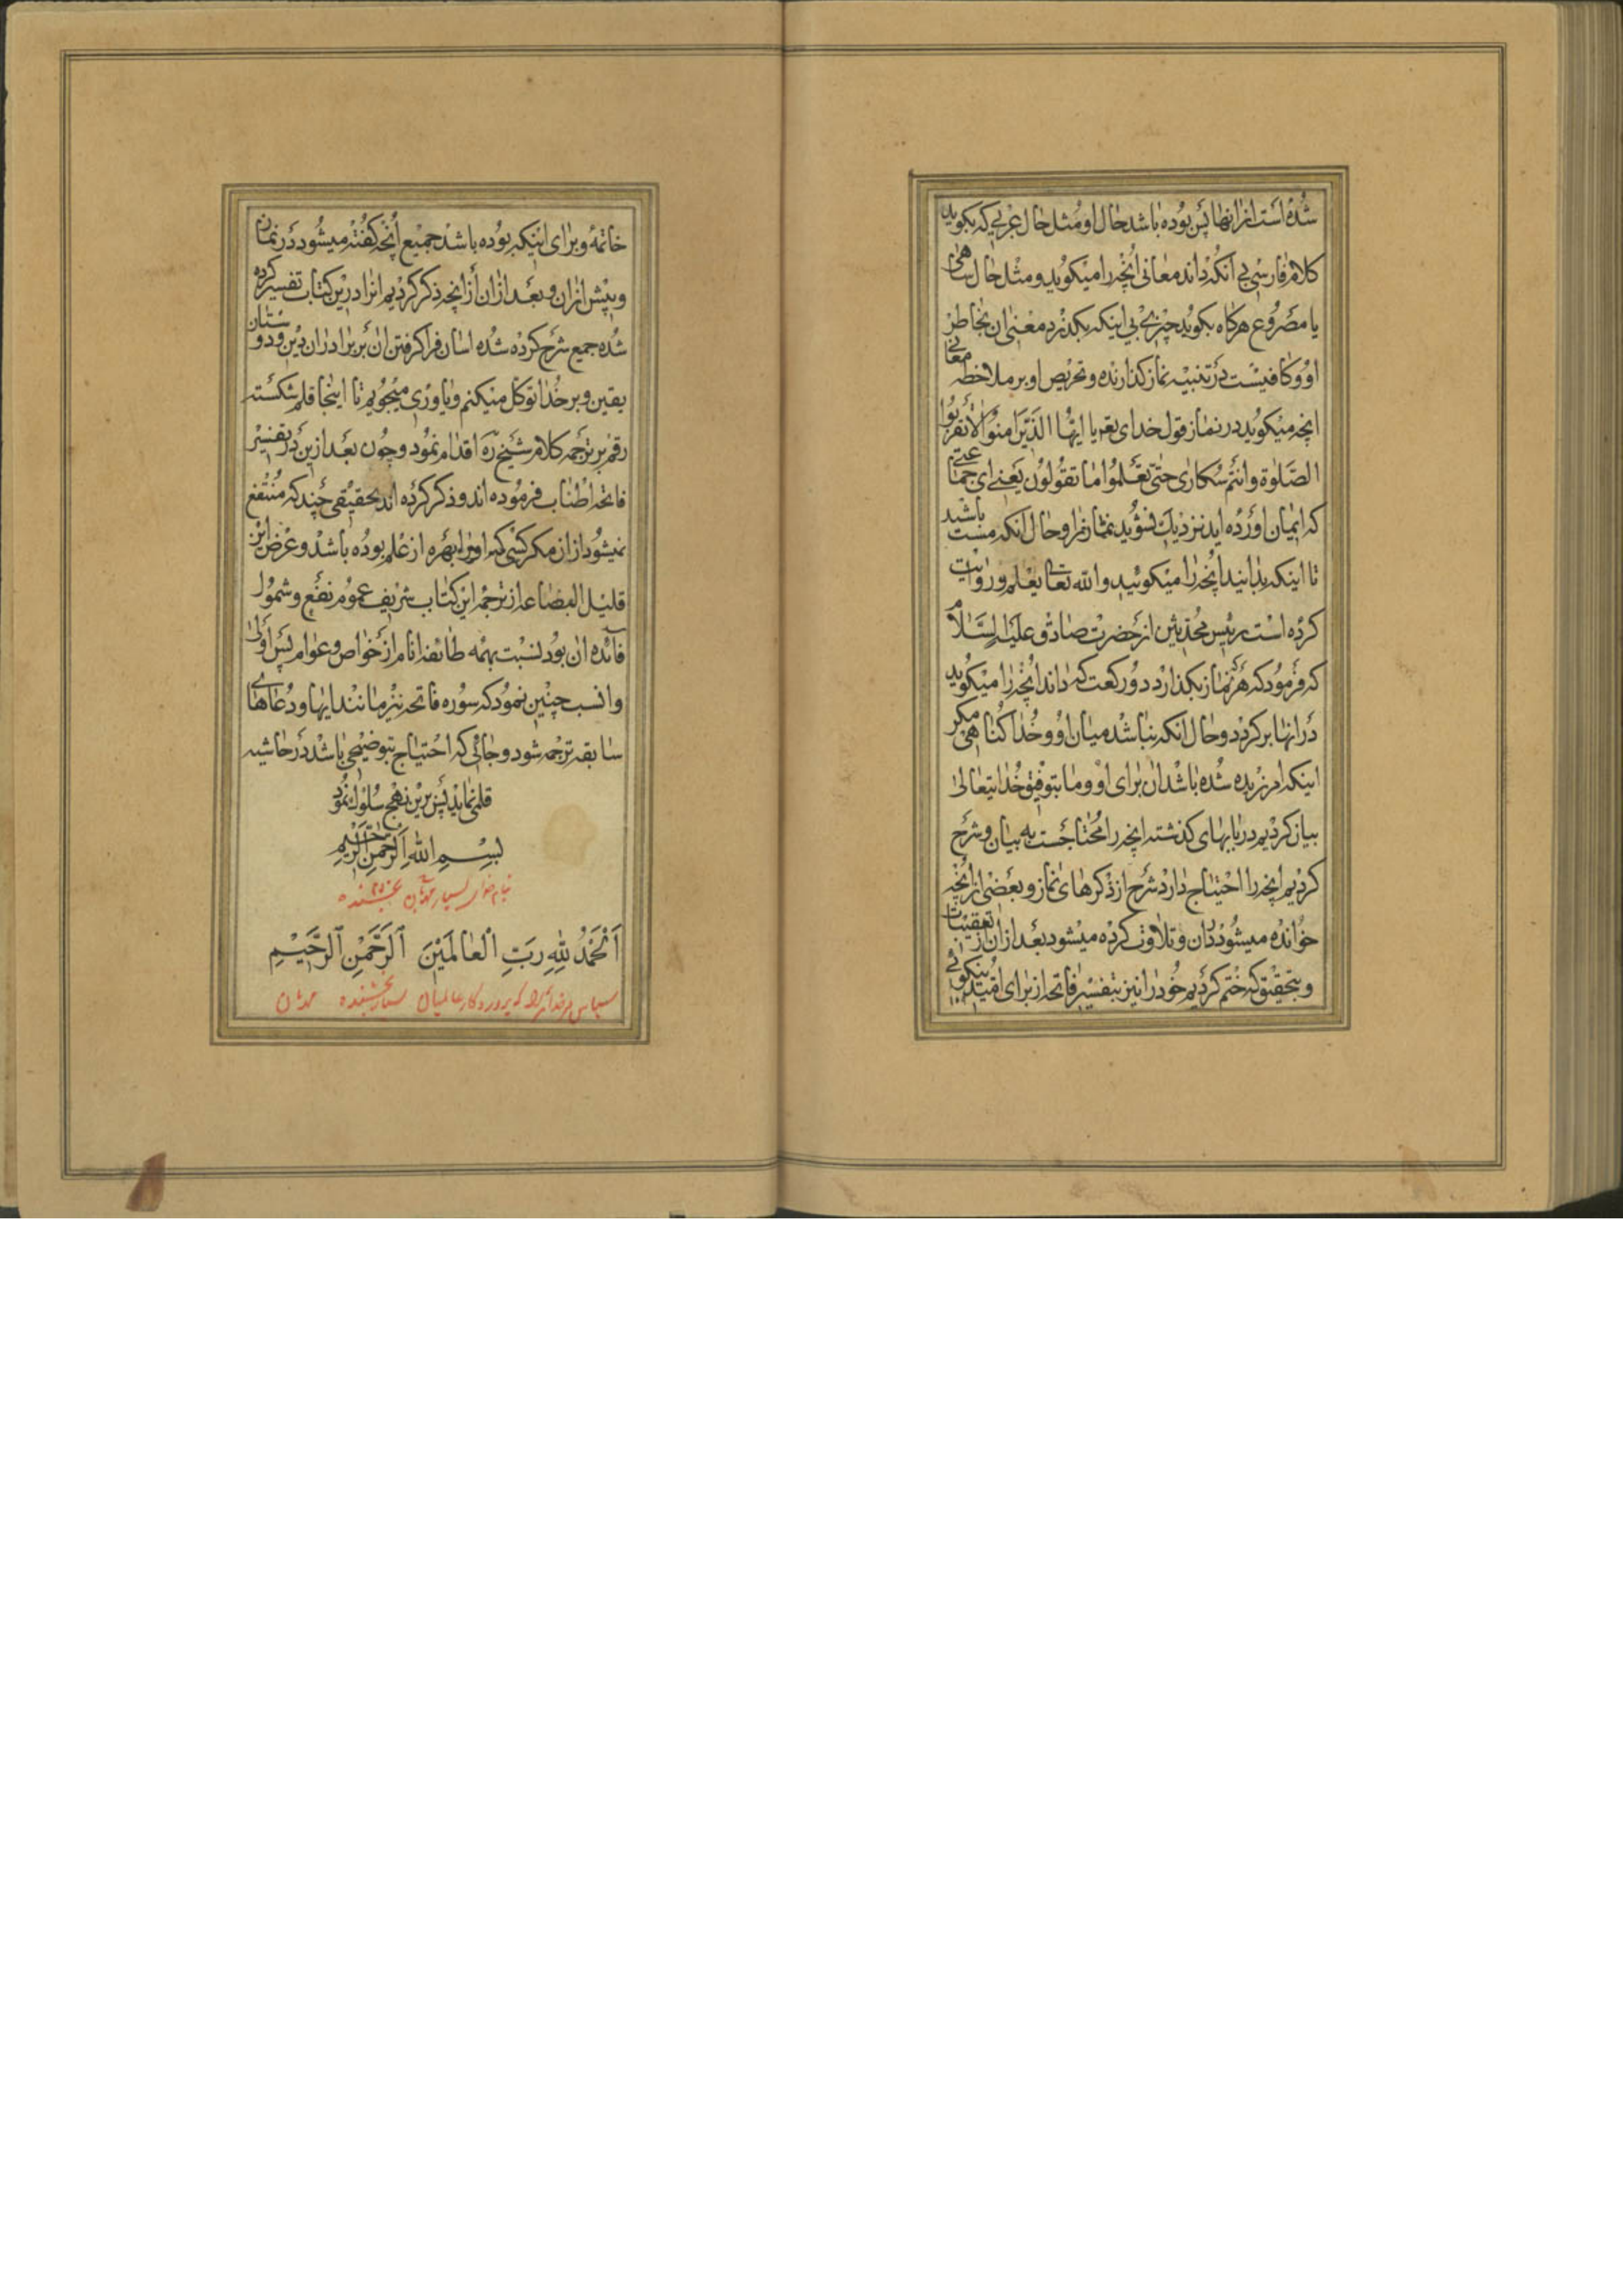 شده است از انها پس بوده باشد حال او مثل حال عربی که بکوید
کلام فارسی بی انکه داند معانی انچه را میکوید و مثل حال ساهی
یا مصروع هرکاه بکوید چیزی بی اینکه بکذرد معنی ان بخاطر
او و کافیست در تنبیه نماز کذارنده و تحریص او بر ملاحظه معانی
انچه میکوید در نماز قول خدای تعه یا ایها الذین امنوا لا تقربوا
الصلوة وانتم سکاری حتی تعلموا ما تقولون یعنی ای جماعتی
که ایمان اورده اید نزدیک نشوید نماز را و حال انکه مست باشید
تا اینکه بدانید انچه را میکوئید والله تعالی یعلم و روایت
کرده است رئیس محدثین از حضرت صادق علیه السلام
که فرمود که هر که نماز بکذارد دو رکعت که داند انچه را میکوید
در انها برکردد و حال انکه نباشد میان او و خدا کناهی مکر
اینکه امرزیده شده باشد ان برای او و ما بتوفیق خدایتعالی
بیان کردیم در بابهای کذشته انچه را محتاجست به بیان و شرح
کردیم انچه را احتیاج دارد شرح از ذکرهای نماز و بعضی از انچه
خوانده میشود دران و تلاوت کرده میشود بعد ازان از تعقیبات
و بتحقیق که ختم کردیم خود را نیز بتفسیر فاتحه از برای امید نیکوئی
خاتمه و برای اینکه بوده باشد جمیع انچه کفته میشود در نماز
و پیش ازان و بعد ازان از انچه ذکر کردیم انرا درین کتاب تفسیر کرده
شده جمیع شرح کرده شده اسان فراکرفتن ان بر برادران دین و دوستان
یقین و بر خدا توکل میکنم و یاوری میجویم تا اینجا قلم شکسته
رقم بر ترجمه کلام شیخ ره اقدام نمود و چون بعد ازین در تفسیر
فاتحه اطناب فرموده اند و ذکر کرده اند تحقیقی چند که منتفع
نمیشود ازان مکر کسی که او را بهره از علم بوده باشد و غرض این
قلیل البضاعه از ترجمه این کتاب شریف عموم نفع و شمول
فائده ان بود نسبت بهمه طائفه انام از خواص و عوام پس اولی
و انسب چنین نمود که سوره فاتحه نیز مانند ایها و دعاهای
سابقه ترجمه شود و جائی که احتیاج بتوضیحی باشد در حاشیه
قلمی نماید پس برین نهج سلوک نمود
بسم الله الرحمن الرحیم
بنام خدای بسیار مهربان بخشنده
اَلْحَمْدُ لِلّٰهِ رَبِّ الْعالَمینَ اَلرَّحْمٰنِ الرَّحیمِ
سپاس مر خدایرا که پروردکار عالمیان بسیار بخشنده مهربان